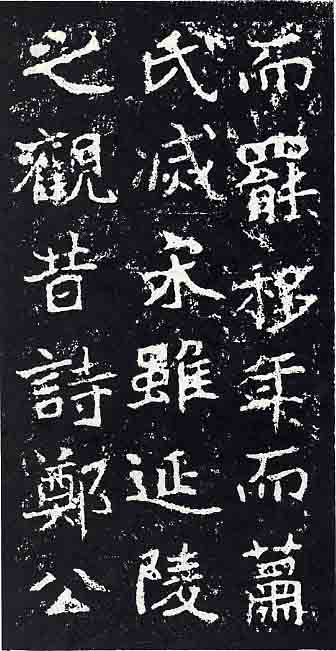 而罷移年而蕭
氏滅宋雖延陵
之觀昔詩鄭公